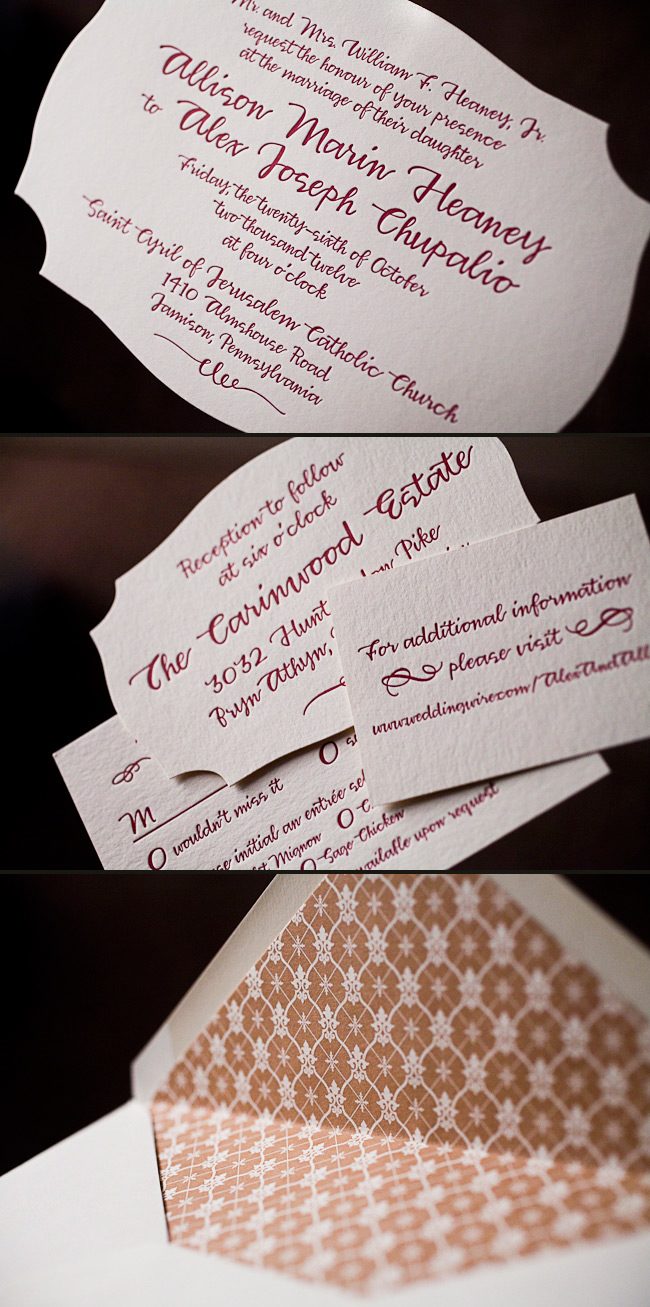 Mr. and Mrs. William F. Heaney, Jr.
request the honour of your presence
at the marriage of their daughter
Allison Marin Heaney
to Alex Joseph Chupalio
Friday, the twenty-sixth of October
two thousand twelve
at four o'clock
Saint Cyril of Jerusalem Catholic Church
1410 Almshouse Road
Jamison, Pennsylvania
Reception to follow
at six o'clock
The Carinwood Estate
3032 Hunt Pike
Bryn Athyn,
For additional information
please visit
www.weddingwire.com/AlexAndAll
M
wouldn't miss it
initial an entrée
Mignon
Sage Chicken
available upon request